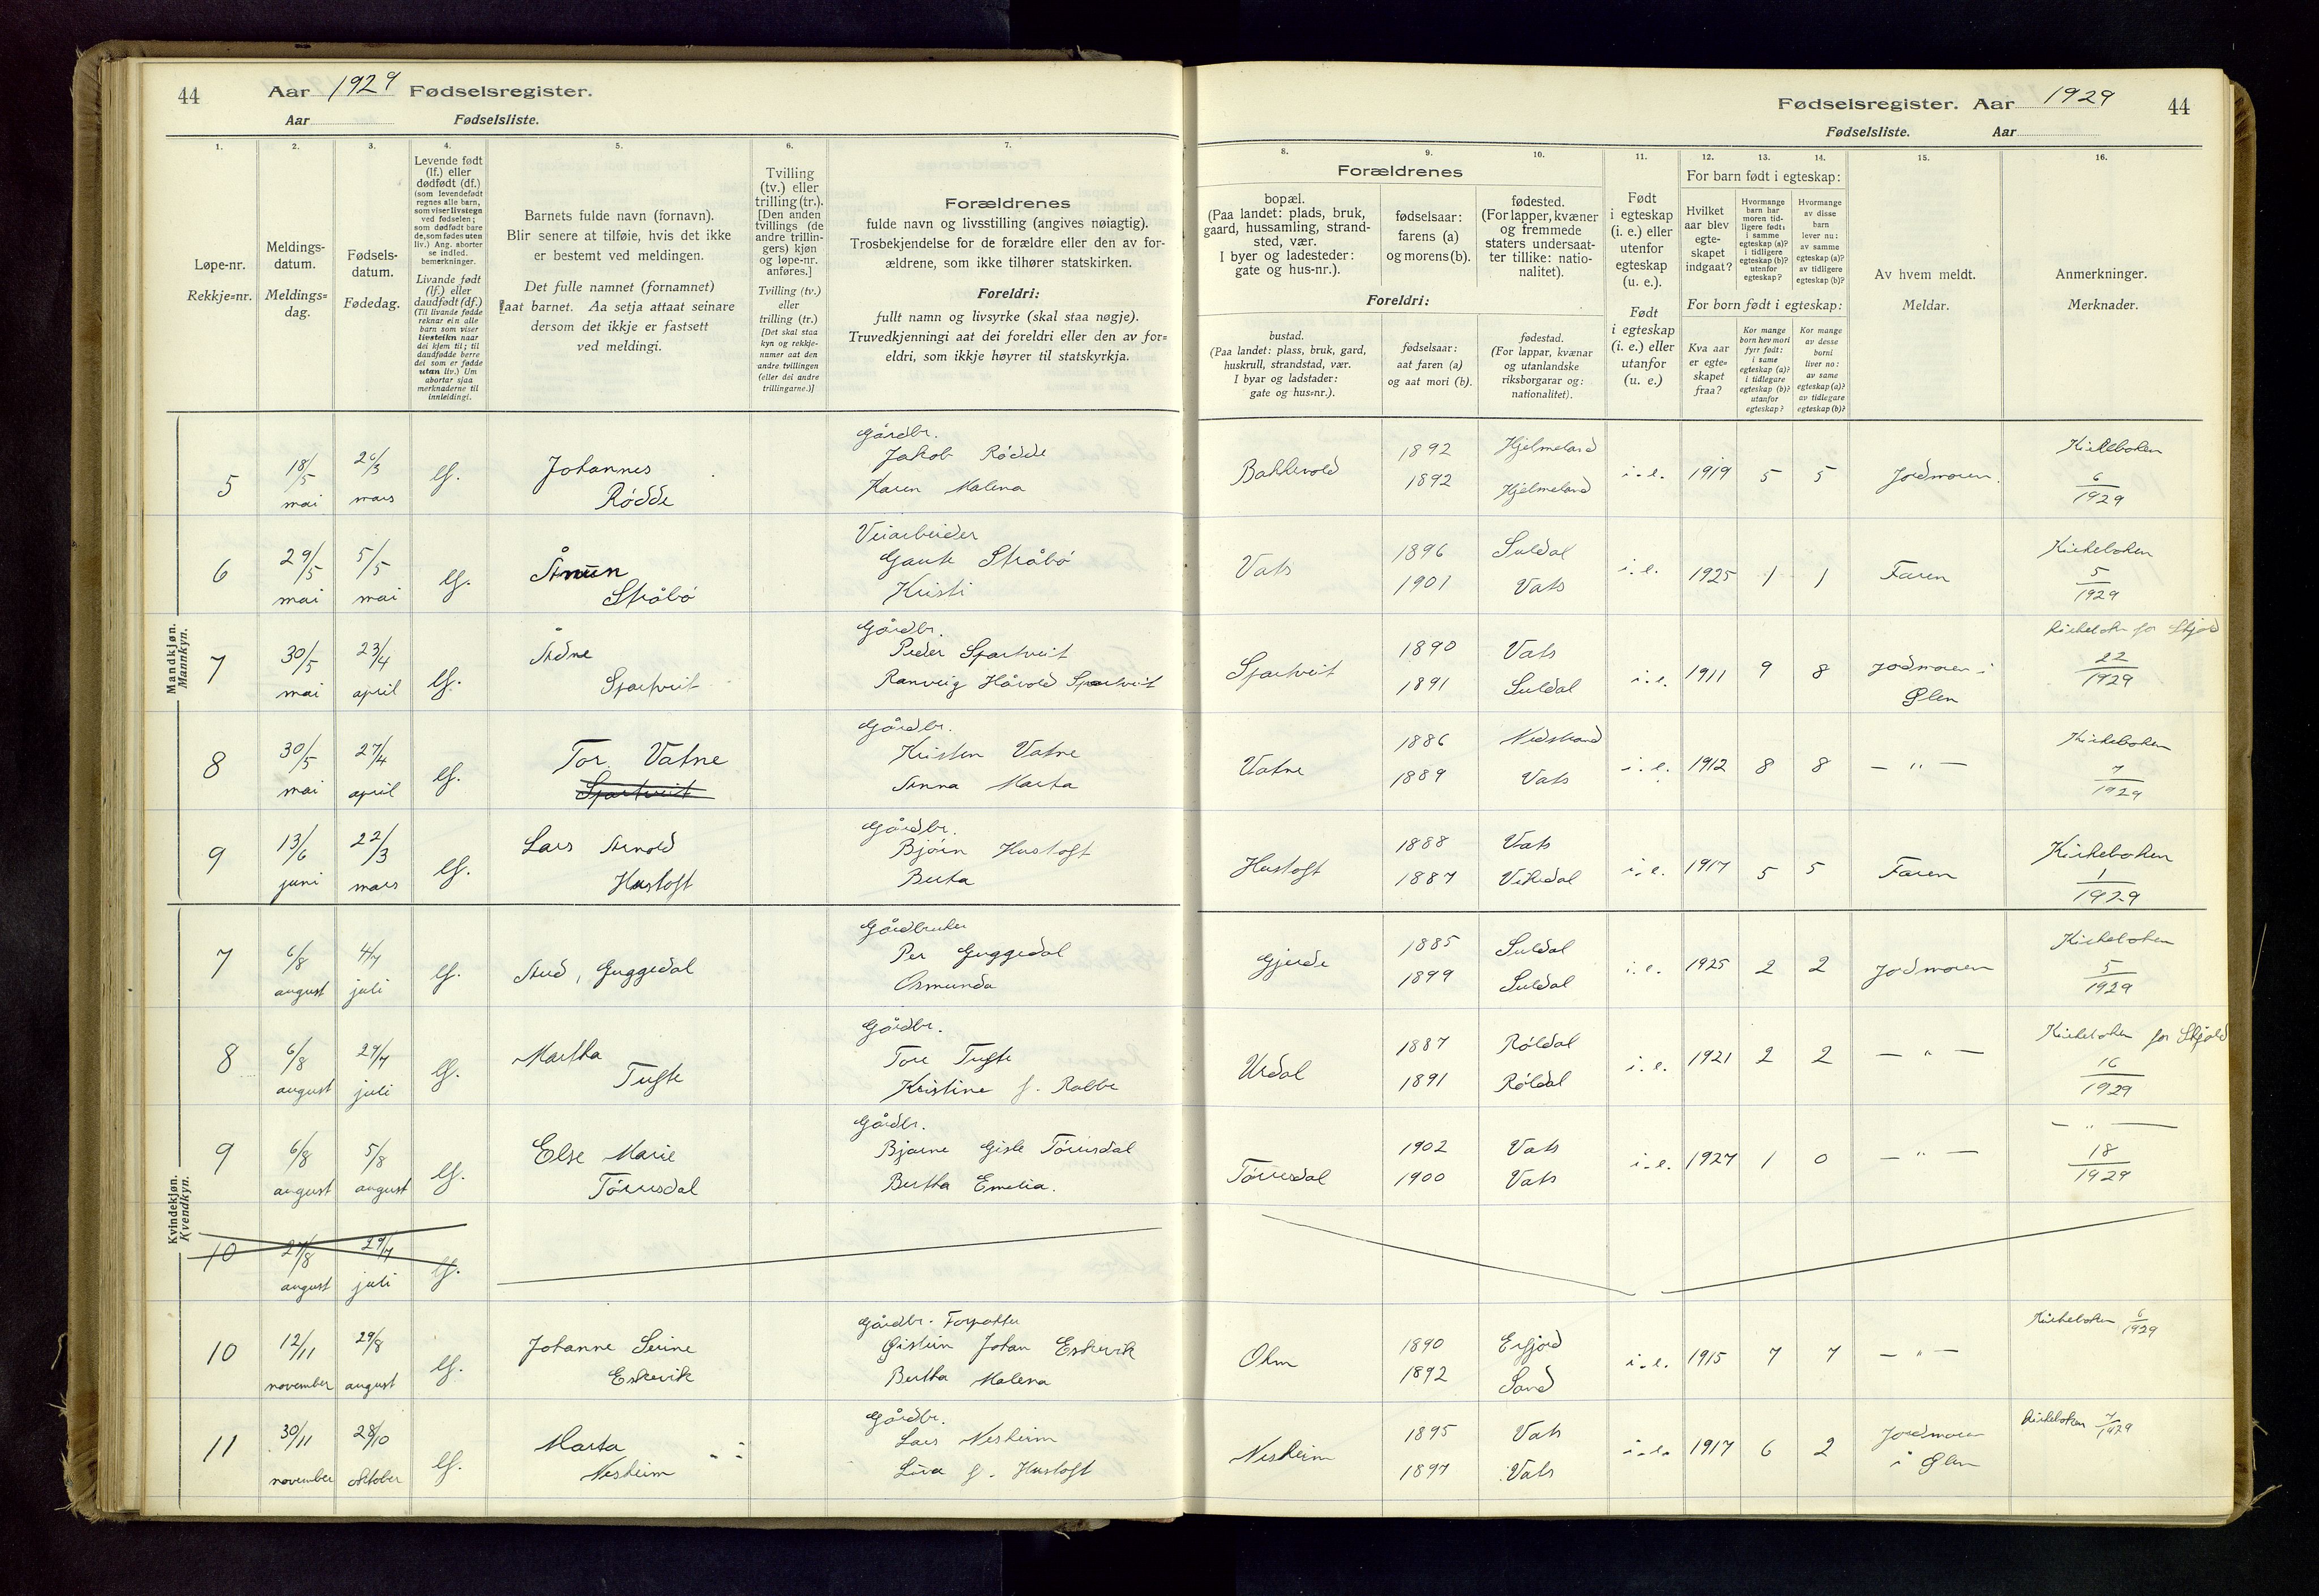 44 Aar 1929 Fødselsregister.
Aar Fødselsliste.
Fødselsregister. Aar 1929 44
Fødselsliste. Aar
1. 2. 3. 4. 5. 6. 7.
Løpe-nr.
Rekkje=nr.
Meldings-
datum.
Meldings=
dag.
Fødsels-
datum.
Fødedag.
Levende født
(lf.) eller
dødfødt (df.)
(som levendefødt
regnes alle barn,
som viser livstegn
ved fødselen;
som dødfødt bare
de, som fødes uten
liv.) Ang. aborter
se indled.
bemerkninger.
Livande født
(lf.) eller
daudfødt (df.)
(Til livande fødde
reknar ein alle
barn som viser
livsteikn naar
dei kjem til; til
daudfødde berre
dei som er fødde
utan liv.) Um
abortar sjaa
merknaderne til
innleidingi.
Barnets fulde navn (fornavn).
Blir senere at tilføie, hvis det ikke
er bestemt ved meldingen.
Det fulle namnet (fornamnet)
aat barnet. Aa setja attaat seinare
dersom det ikkje er fastsett
ved meldingi.
Tvilling
(tv.) eller
trilling (tr.).
[Den anden
tvillings (de
andre trillin-
gers) kjøn
og løpe-nr.
anføres.]
Tvilling (tv.)
eller
trilling (tr.)
[Det skal staa
kyn og rekkje-
numer aat den
andre tvillingen
(eller dei andre
trillingarne.)]
Forældrenes
fulde navn og livsstilling (angives nøiagtig).
Trosbekjendelse for de forældre eller den av for-
ældrene, som ikke tilhører statskirken.
Foreldri:
fullt namn og livsyrke (skal staa nøgje).
Truvedkjenningi aat dei foreldri eller den av for=
eldri, som ikkje høyrer til statskyrkja.
8. 9. 10. 11. 12. 13. 14. 15. 16.
Forældrenes
bopæl.
(Paa landet: plads, bruk,
gaard, hussamling, strand-
sted, vær.
I byer og ladesteder:
gate og hus-nr.).
fødselsaar:
farens (a)
og morens (b).
fødested.
(For lapper, kvæner
og fremmede
staters undersaat-
ter tillike: natio-
nalitet).
Foreldri:
bustad.
(Paa landet: plass, bruk, gard,
huskrull, strandstad, vær.
I byar og ladstader:
gate og hus=nr.).
fødselsaar:
aat faren (a)
og aat mori (b).
fødestad.
(For lappar, kvænar
og utanlandske
riksborgarar og:
nationalitet).
Født
i egteskap
(i. e.) eller
utenfor
egteskap
(u. e.).
Født
i egteskap
(i. e.) eller
utanfor
(u. e.)
For barn født i egteskap:
Hvilket
aar blev
egte-
skapet
indgaat?
Hvormange
barn har
moren tid-
ligere født:
i samme
egteskap (a)?
i tidligere
egteskap (b)?
utenfor
egteskap?
Hvormange
av disse
barn
lever nu:
av samme
egteskap (a)?
av tidligere
egteskap (b)?
For born født i egteskap:
Kva aar
er egte=
skapet
fraa?
Kor mange
born hev mori
fyrr født:
i same
egteskap (a)?
i tidlegare
egteskap (b)?
utanfor
egteskap?
Kor mange
av desse
borni
liver no:
av same
egteskap (a)?
av tidlegare
egteskap (b)?
Av hvem meldt.
Meldar.
Anmerkninger.
Merknader.
Mandkjøn.
Mannkyn.
5 18/5 mai 26/3 mars lf. Johannes Rødde Gårdbr. Jakob Rødde Karen Malena
Bakkevold 1892 1892 Hjelmeland Hjelmeland i. e. 1919 5 5 Jordmoren. Kirkeboken 6/1929
6 29/5 mai 5/5 mai lf. Ånun Stråbø Veiarbeider Gaute Stråbø Kristi
Vats 1896 1901 Suldal Vats i. e. 1925 1 1 Faren Kirkeboken 5/1929
7 30/5 mai 23/4 april lf. Ådne Spartveit Gårdbr. Peder Spartveit Ranveig Håvold Spartveit
Spartveit 1890 1891 Vats Suldal i. e. 1911 9 8 Jordmoren i Ølen Kirkeboken for Skjold 22/1929
8 30/5 mai 27/4 april lf. Tor. Vatne Spartveit Gårdbr. Kristen Vatne Anna Marta
Vatne 1886 1889 Nedstrand Vats i. e. 1912 8 8 — " — Kirkeboken 7/1929
9 13/6 juni 22/3 mars lf. Lars Arnold Hustoft Gårdbr. Bjørn Hustoft Berta
Hustoft 1888 1887 Vats Vikedal i. e. 1917 5 5 Faren Kirkeboken 1/1929
Kvindekjøn.
Kvendkyn.
7 6/8 august 4/7 juli lf. Aud, Guggedal Gårdbruker Per Guggedal Osmunda
Gjerde 1885 1899 Suldal Suldal i. e. 1925 2 2 Jordmoren Kirkeboken 5/1929
8 6/8 august 29/7 juli lf. Martha Tufte Gårdbr. Tore Tufte Kristine f. Rabbe
Urdal 1887 1891 Røldal Røldal i. e. 1921 2 2 — " — Kirkeboken for Skjold 16/1929
9 6/8 august 5/8 august lf. Else Marie Tørresdal Gårdbr. Bjarne Gisle Tørresdal Bertha Emelia.
Tørresdal 1902 1900 Vats Vats i. e. 1927 1 0 — " — — " — 18/1929
10 27/8 august 29/7 juli lf.
10 12/11 november 29/8 august lf. Johanne Serine Eskevik Gårdbr. Forpakter Øistein Johan Eskevik Bertha Malena
Ohm 1890 1892 Erfjord Sand i. e. 1915 7 7 — " — Kirkeboken 6/1929
11 30/11 november 28/10 oktober lf. Marta Nesheim Gårdbr. Lars Nesheim Lina f. Hustoft
Nesheim 1895 1897 Vats Vats i. e. 1917 6 2 Jordmoren i Ølen Kirkeboken 7/1929